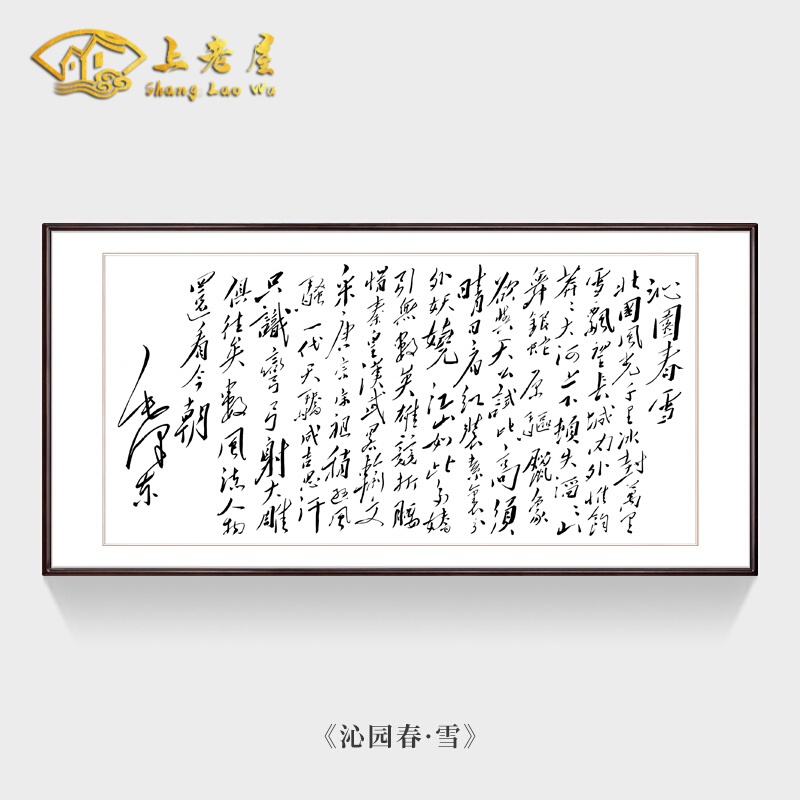 上老屋
Shang Lao Wu
沁園春雪
北國風光千里冰封萬里
雪飄望長城內外惟餘
莽〻大河上下頓失滔〻山
舞銀蛇原驅臘象
欲與天公試比高須
晴日看紅裝素裹分
外妖嬈江山如此多嬌
引無數英雄競折腰
惜秦皇漢武畧輸文
采唐宗宋祖稍遜風
騷一代天驕成吉思汗
只識彎弓射大雕
俱往矣數風流人物
還看今朝
毛澤東
《沁园春·雪》